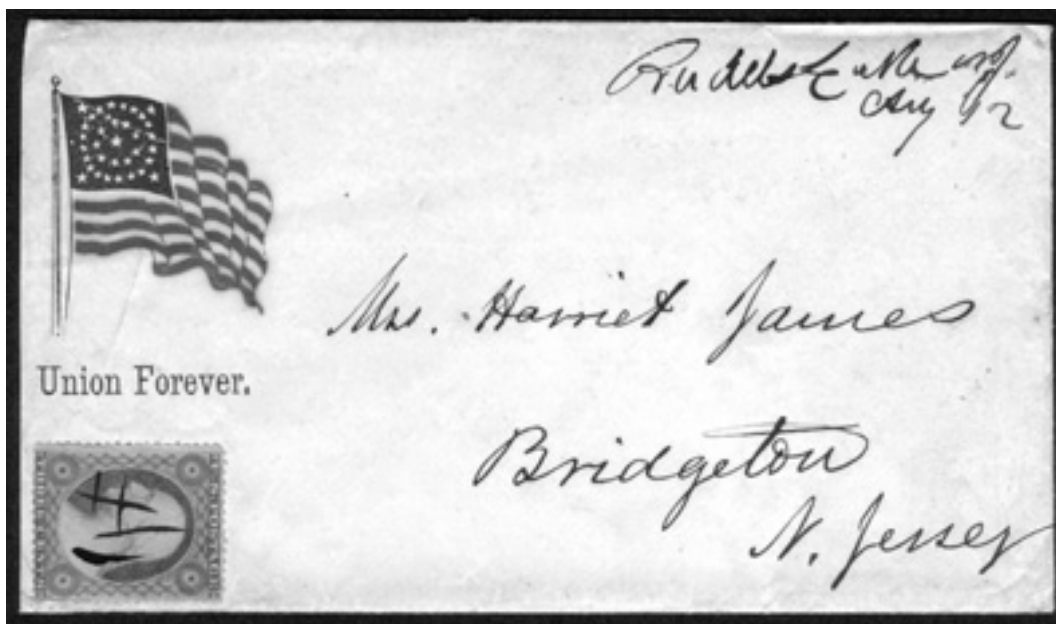 Aug 12
Union Forever.
Mrs. Harriet James
Bridgeton
N. Jersey